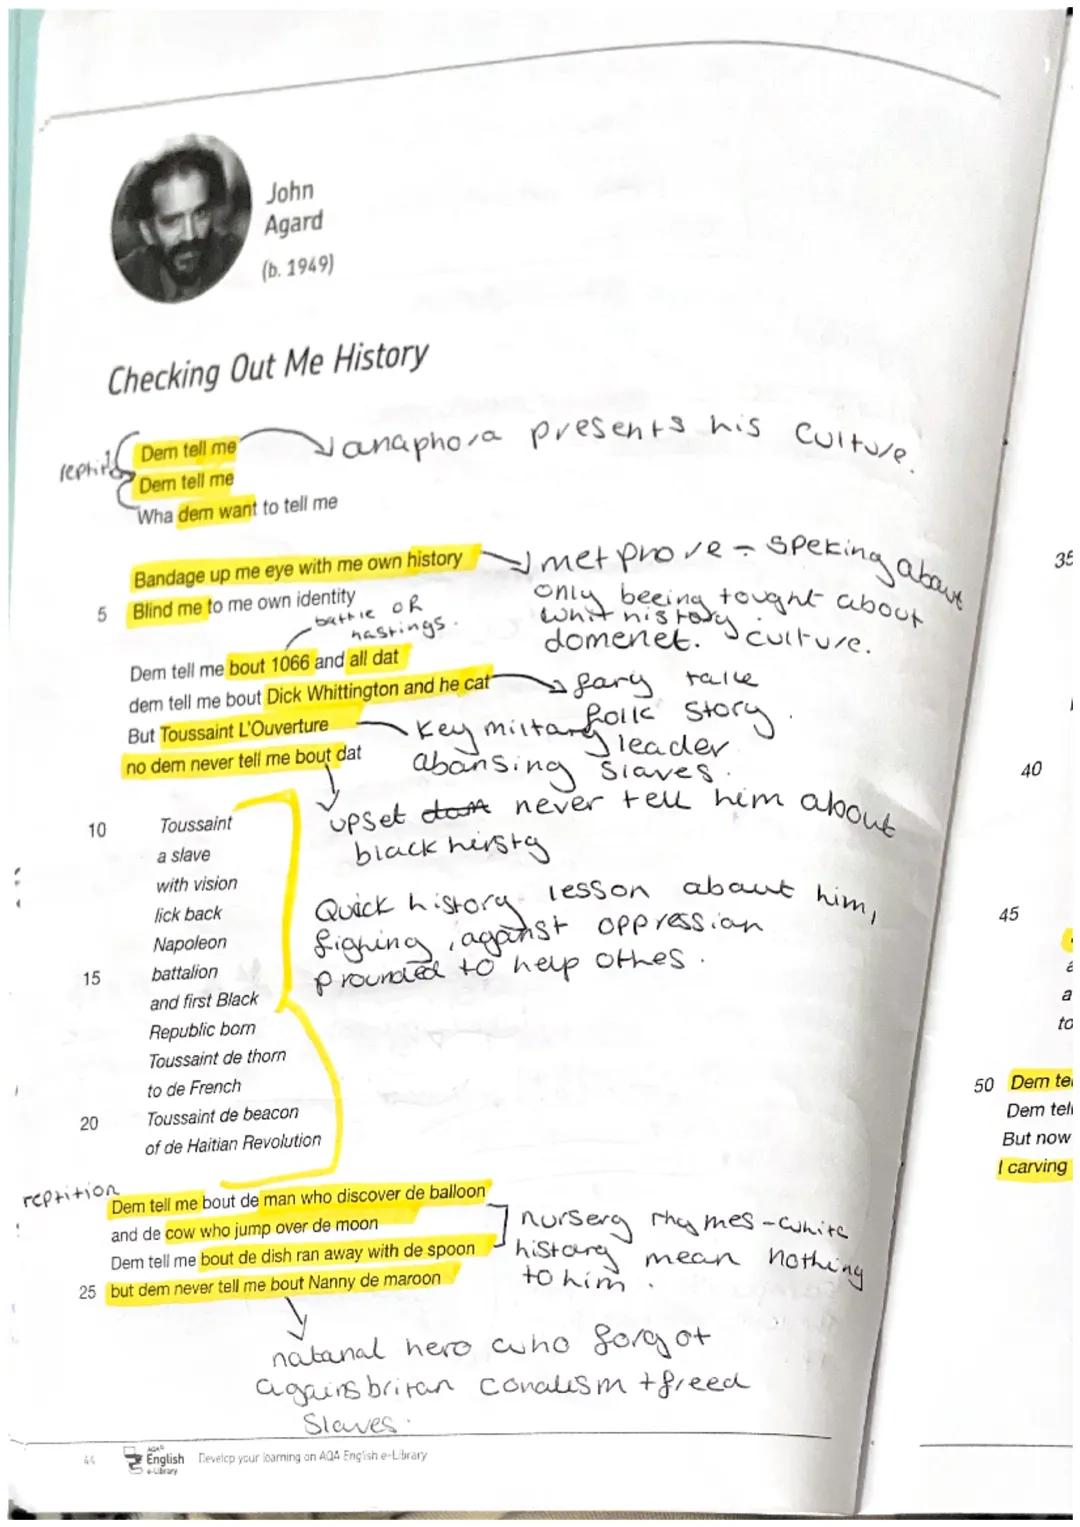 John
Agard
(b. 1949)
Checking Out Me History
Dem tell me
Dem tell me
Wha dem want to tell me
anaphora presents his culture.
Bandage up me eye with me own history
5 Blind me to me own identity
metphore - speking about
only beeing tought about
whit history
domenet. culture.
battle of
hastings.
Dem tell me bout 1066 and all dat
dem tell me bout Dick Whittington and he cat
But Toussaint L'Ouverture
no dem never tell me bout dat
fary talle
folk story.
Key miltary leader
abansing slaves.
upset never tell him about
black hirsty
10 Toussaint
a slave
with vision
lick back
Napoleon
15 battalion
and first Black
Republic born
Toussaint de thorn
to de French
20 Toussaint de beacon
of de Haitian Revolution
Quick history lesson about him,
fighing, against oppression
prounded to help othes.
reptition
Dem tell me bout de man who discover de balloon
and de cow who jump over de moon
Dem tell me bout de dish ran away with de spoon
25 but dem never tell me bout Nanny de maroon
nursery rhymes - white
history mean nothing
to him.
natanal hero who forgot
agains britan conalism + freed
slaves.
44
AQA
English
e-Library
Develop your learning on AQA English e-Library
35
40
45
a
a
to
50 Dem te
Dem tell
But now
I carving